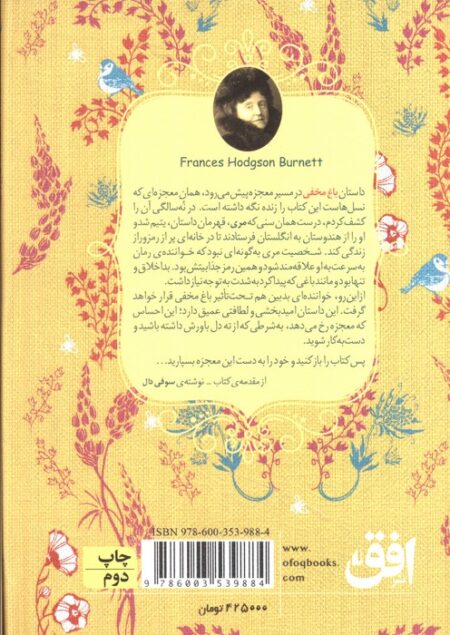 Frances Hodgson Burnett
داستان باغ مخفی در مسیر معجزه پیش می‌رود، همان معجزه‌ای که
نسل‌هاست این کتاب را زنده نگه داشته است. در نُه‌سالگی آن را
کشف کردم، درست همان سنی که مری، قهرمان داستان، یتیم شد و
او را از هندوستان به انگلستان فرستادند تا در خانه‌ای پر از رمزوراز
زندگی کند. شخصیت مری به‌گونه‌ای نبود که خواننده‌ی رمان
به سرعت به او علاقه‌مند شود و همین رمز جذابیتش بود. بداخلاق و
تنها بود و مانند باغی که پیدا کرد به شدت به توجه نیاز داشت.
از این‌رو، خواننده‌ای بدبین هم تحت‌تأثیر باغ مخفی قرار خواهد
گرفت. این داستان امیدبخشی و لطافتی عمیق دارد؛ این احساس
که معجزه رخ می‌دهد، به‌شرطی که از ته دل باورش داشته باشید و
دست‌به‌کار شوید.
پس کتاب را باز کنید و خود را به دست این معجزه بسپارید...
از مقدمه‌ی کتاب _ نوشته‌ی سوفی دال
ISBN 978-600-353-988-4
9 786003 539884
چاپ
دوم
www.
ofoqbooks.
com
افق
۴۲۵۰۰۰ تومان